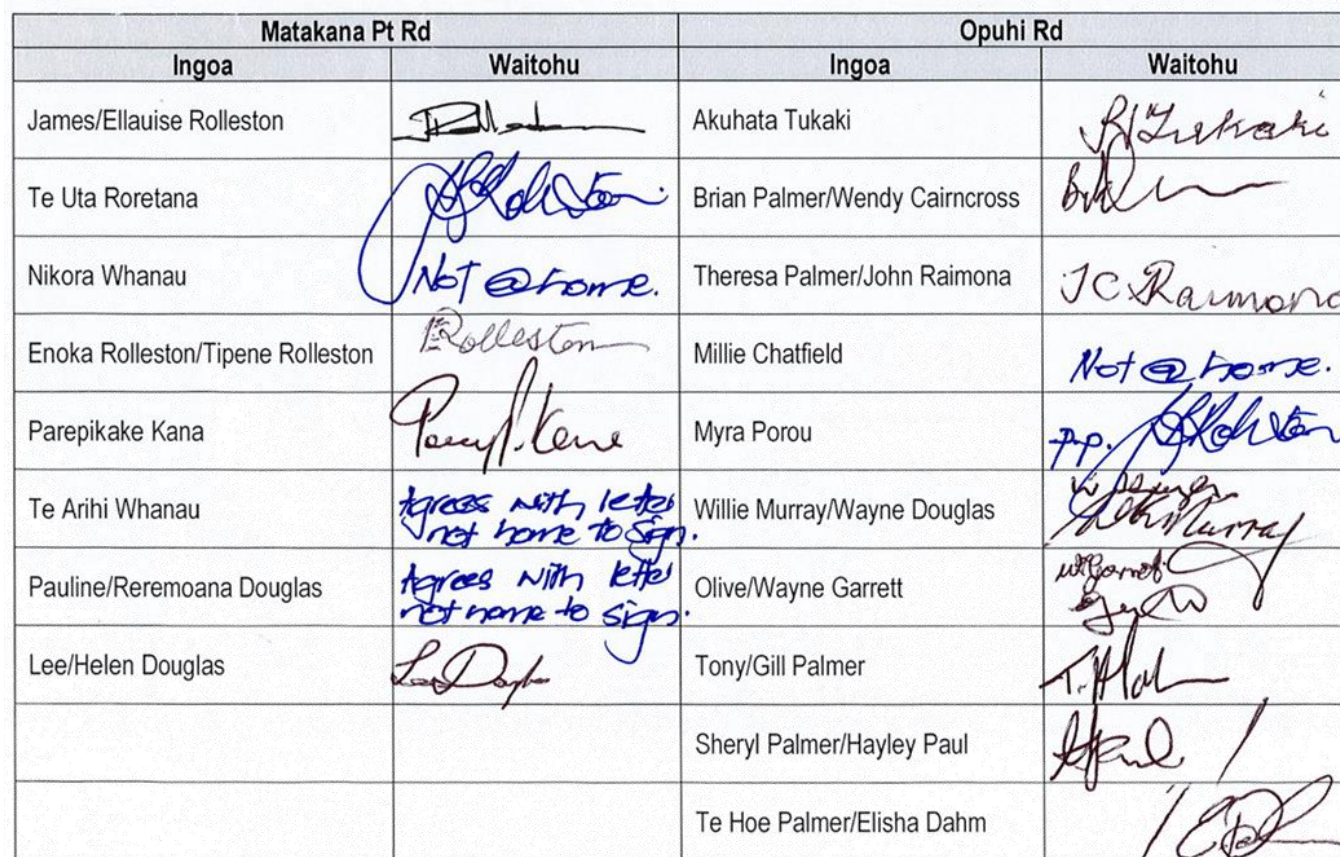 Matakana Pt Rd Opuhi Rd
Ingoa Waitohu Ingoa Waitohu
James/Ellauise Rolleston Akuhata Tukaki Tukaki
Te Uta Roretana Brian Palmer/Wendy Cairncross
Nikora Whanau Not @ home. Theresa Palmer/John Raimona JC Raimona
Enoka Rolleston/Tipene Rolleston Rolleston Millie Chatfield Not @ home.
Parepikake Kana Myra Porou p.p.
Te Arihi Whanau Agrees with letter Willie Murray/Wayne Douglas
not home to sign. Murray
Pauline/Reremoana Douglas Agrees with letter Olive/Wayne Garrett
not home to sign.
Lee/Helen Douglas Tony/Gill Palmer
Sheryl Palmer/Hayley Paul
Te Hoe Palmer/Elisha Dahm